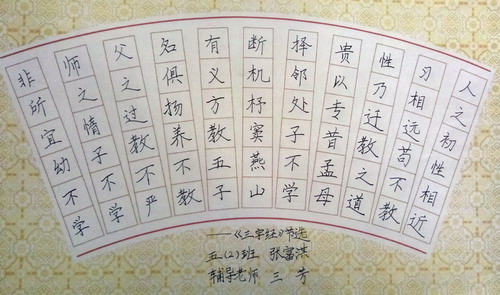 人之初性相近
习相远苟不教
性乃迁教之道
贵以专昔孟母
择邻处子不学
断机杼窦燕山
有义方教五子
名俱扬养不教
父之过教不严
师之情子不学
非所宜幼不学
——《三字经》节选
五(2)班 张富洪
辅导老师 三芳